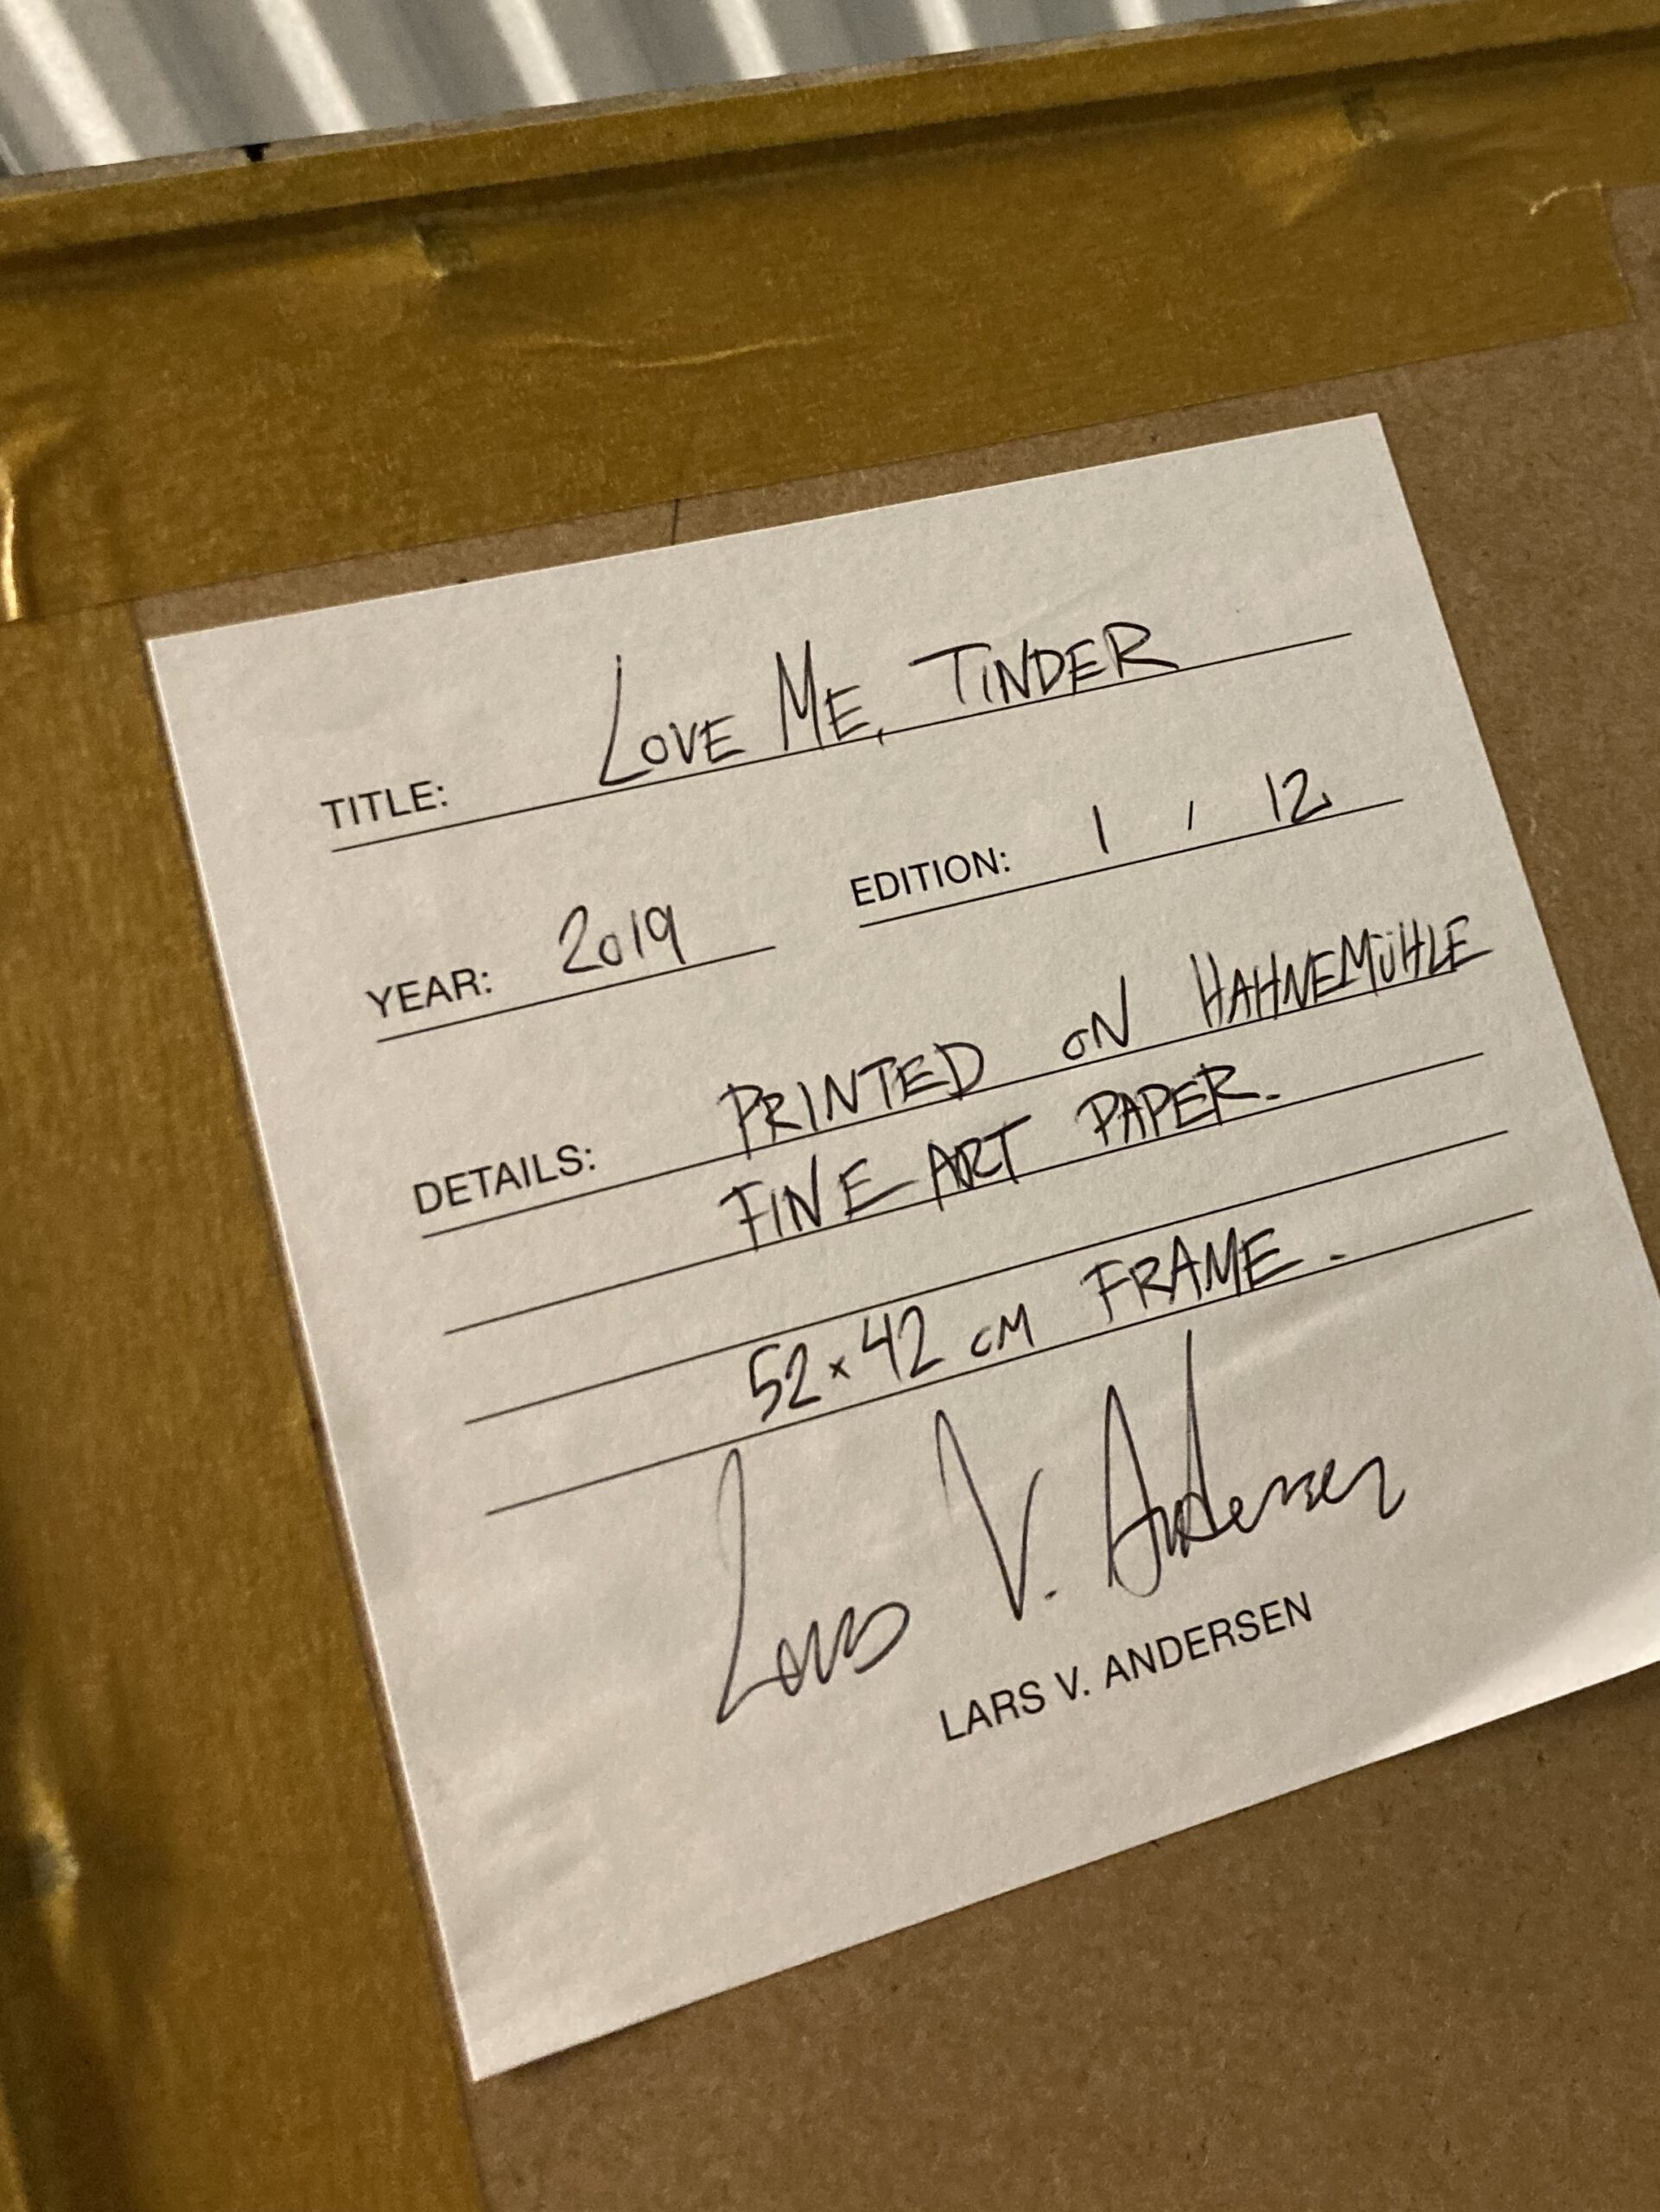 TITLE: LOVE ME, TINDER
YEAR: 2019 EDITION: 1 / 12
DETAILS: PRINTED ON HAHNEMÜHLE
FINE ART PAPER.
52x42 CM FRAME.
Lars V. Andersen
LARS V. ANDERSEN